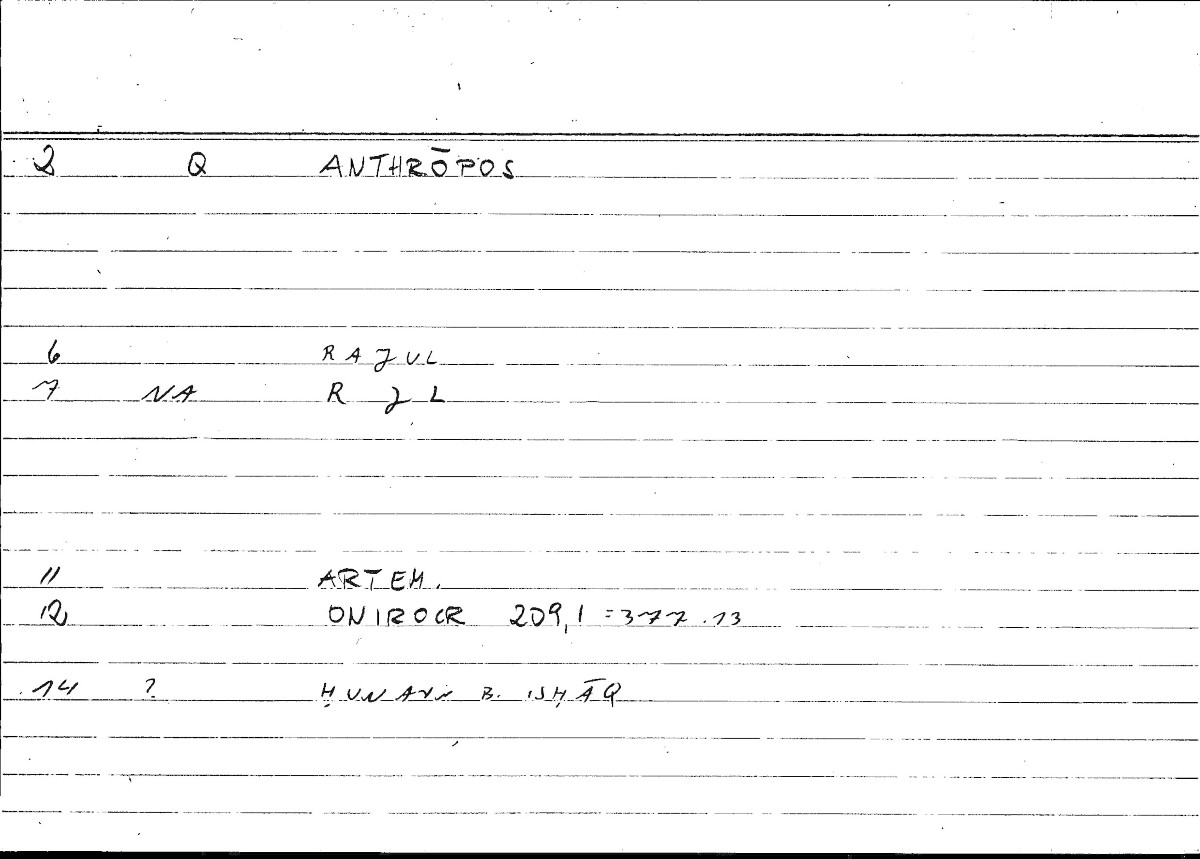 2 Q ANTHRŌPOS
6 RAJUL
7 NA R J L
11 ARTEM.
12 ONIROCR 209,1 = 377.13
14 ? ḤUNAYN B. ISḤĀQ